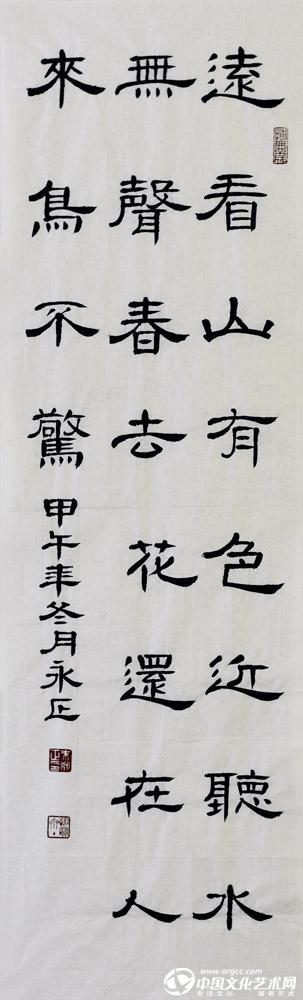 遠看山有色近聽水
無聲春去花還在人
來鳥不驚
甲午年冬月永正
www.orgcc.com
中国文化艺术网